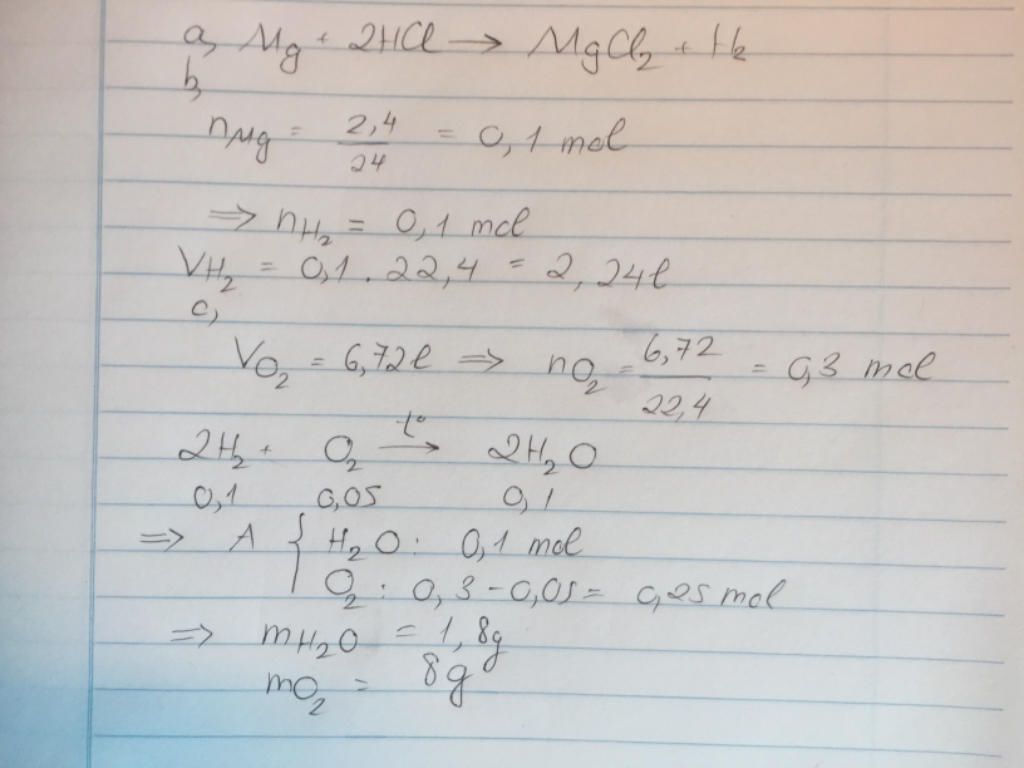 a, Mg + 2HCl → MgCl₂ + H₂
b,
nMg = 2,4/24 = 0,1 mol
⇒ nH₂ = 0,1 mol
VH₂ = 0,1 . 22,4 = 2,24l
c,
VO₂ = 6,72l ⇒ nO₂ = 6,72/22,4 = 0,3 mol
2H₂ + O₂ —t°→ 2H₂O
0,1 0,05 0,1
⇒ A { H₂O : 0,1 mol
O₂ : 0,3 - 0,05 = 0,25 mol
⇒ mH₂O = 1,8g
mO₂ = 8g